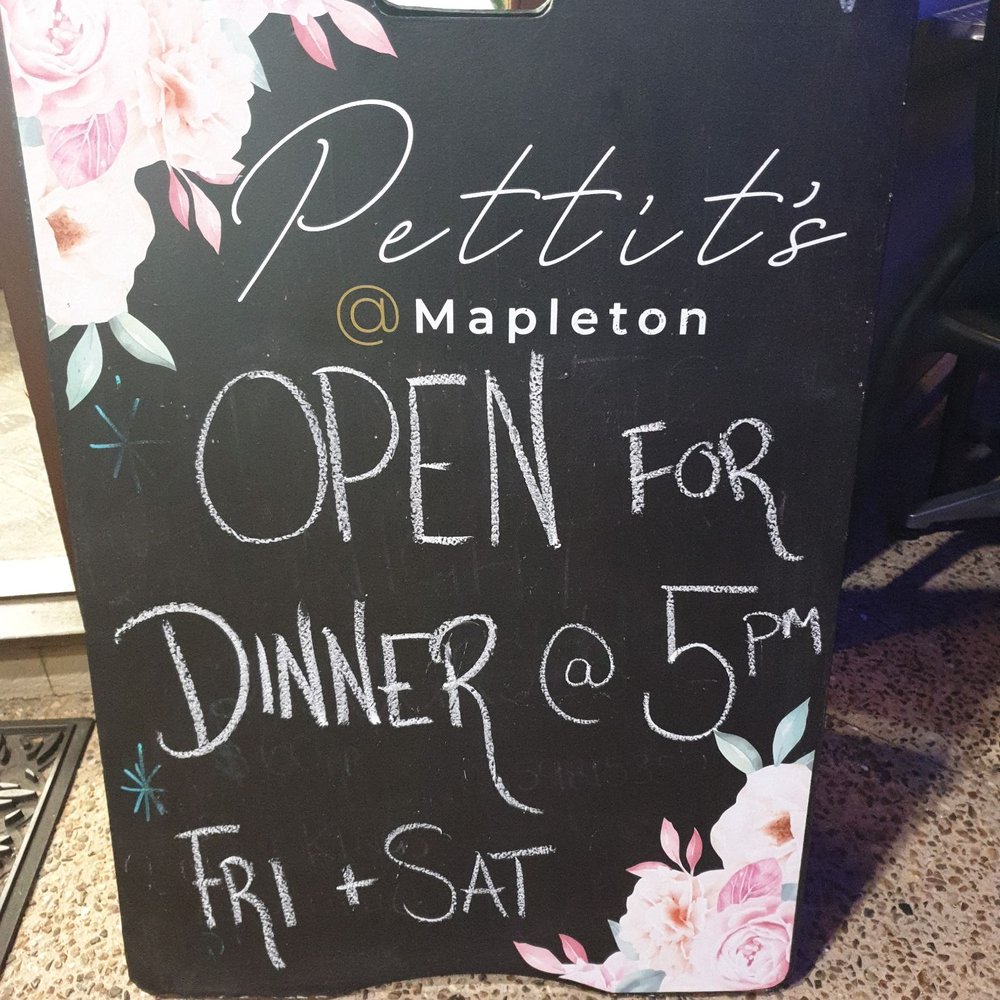 Pettit's
@Mapleton
OPEN FOR
DINNER @ 5PM
FRI + SAT